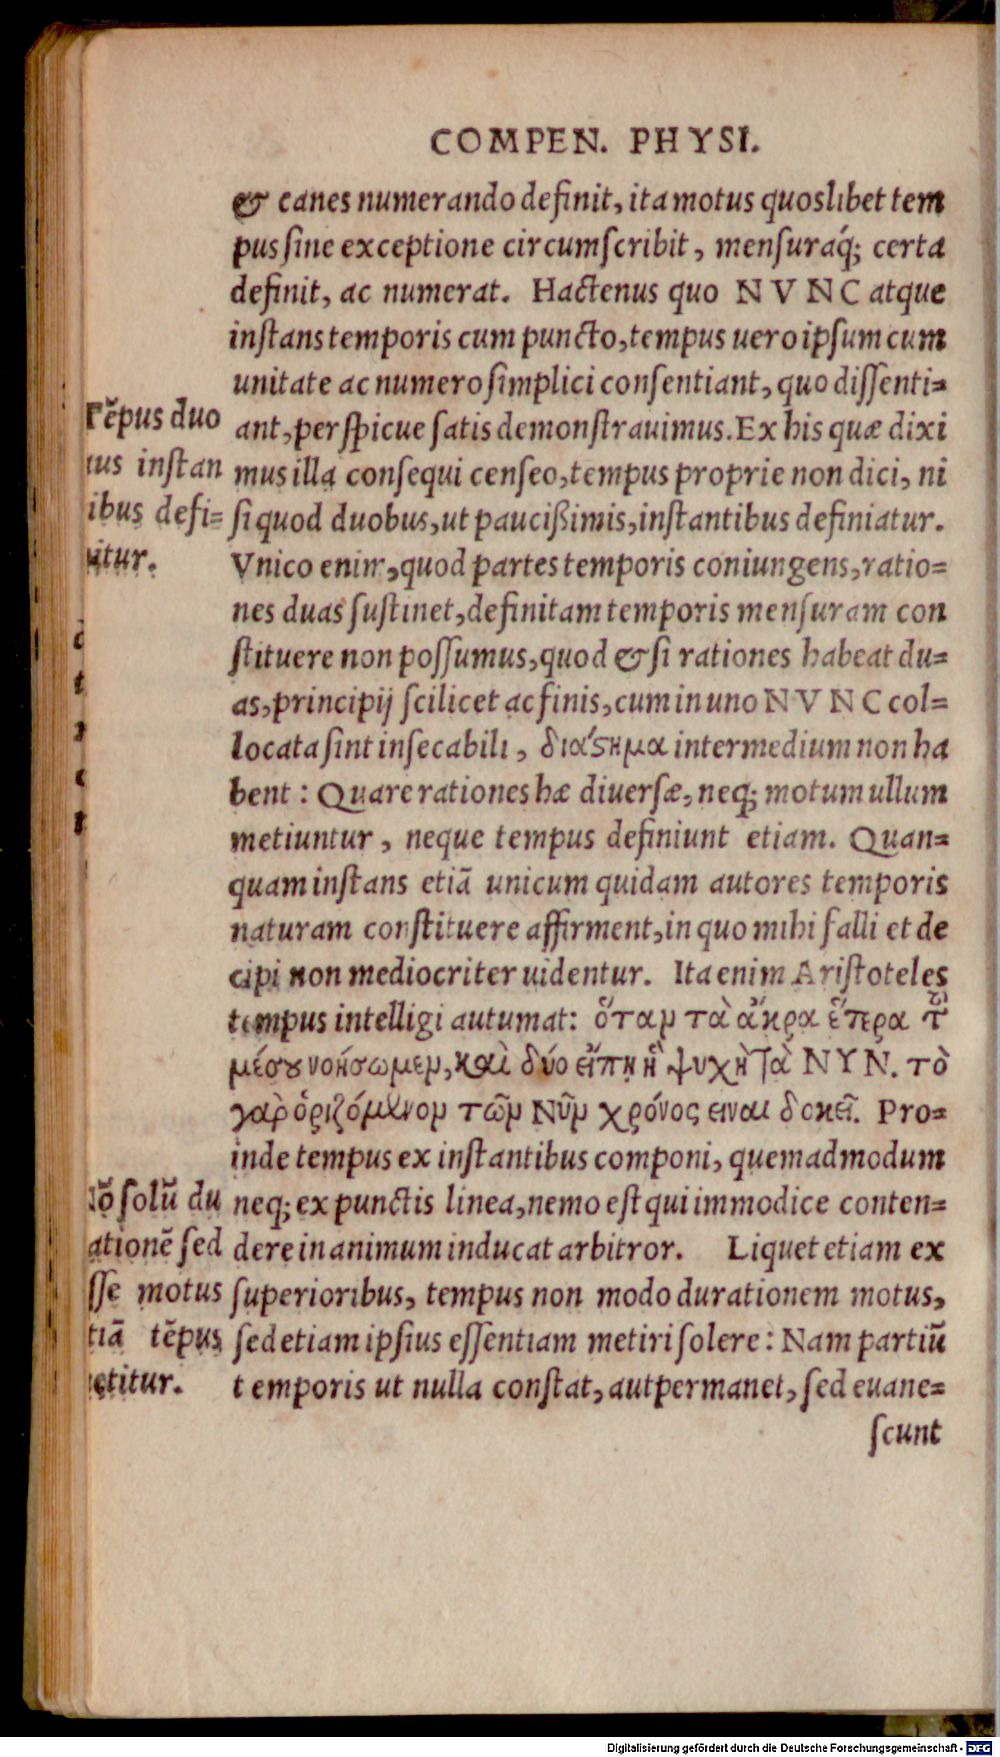 COMPEN. PHYSI.
& canes numerando definit, ita motus quoslibet tem
pus ſine exceptione circumſcribit, menſuraq́; certa
definit, ac numerat. Hactenus quo NVNC atque
inſtans temporis cum puncto, tempus uero ipſum cum
unitate ac numero ſimplici conſentiant, quo diſſenti=
ant, perſpicue ſatis demonſtrauimus. Ex his quæ dixi
mus illa conſequi cenſeo, tempus proprie non dici, ni
ſi quod duobus, ut pauciſsimis, inſtantibus definiatur.
Vnico enim, quod partes temporis coniungens, ratio=
nes duas ſuſtinet, definitam temporis menſuram con
ſtituere non poſſumus, quod & ſi rationes habeat du=
as, principij ſcilicet ac finis, cum in uno NVNC col=
locata ſint inſecabili, διάϛημα intermedium non ha
bent: Quare rationes hæ diuerſæ, neq; motum ullum
metiuntur, neque tempus definiunt etiam. Quan=
quam inſtans etiã unicum quidam autores temporis
naturam conſtituere affirment, in quo mihi falli et de
cipi non mediocriter uidentur. Ita enim Ariſtoteles
tempus intelligi autumat: ὅταν τὰ ἄκρα ἕτερα τ͂
μέσȣ νοήσωμεν, καὶ δύο εἴπῃ ἡ ψυχὴ τὰ ΝΥΝ. τὸ
γὰρ ὁριζόμενον τῶν νῦν χρόνος ειναι δοκεῖ. Pro=
inde tempus ex inſtantibus componi, quemadmodum
neq; ex punctis linea, nemo eſt qui immodice conten=
dere in animum inducat arbitror. Liquet etiam ex
ſuperioribus, tempus non modo durationem motus,
ſed etiam ipſius eſſentiam metiri ſolere: Nam partiũ
temporis ut nulla conſtat, aut permanet, ſed euane=
ſcunt
Tẽpus duo
us inſtan
ibus defi=
itur.
õ ſolũ du
ationẽ ſed
ſſe motus
tiã tẽpus
etitur.
Digitalisierung gefördert durch die Deutsche Forschungsgemeinschaft - DFG